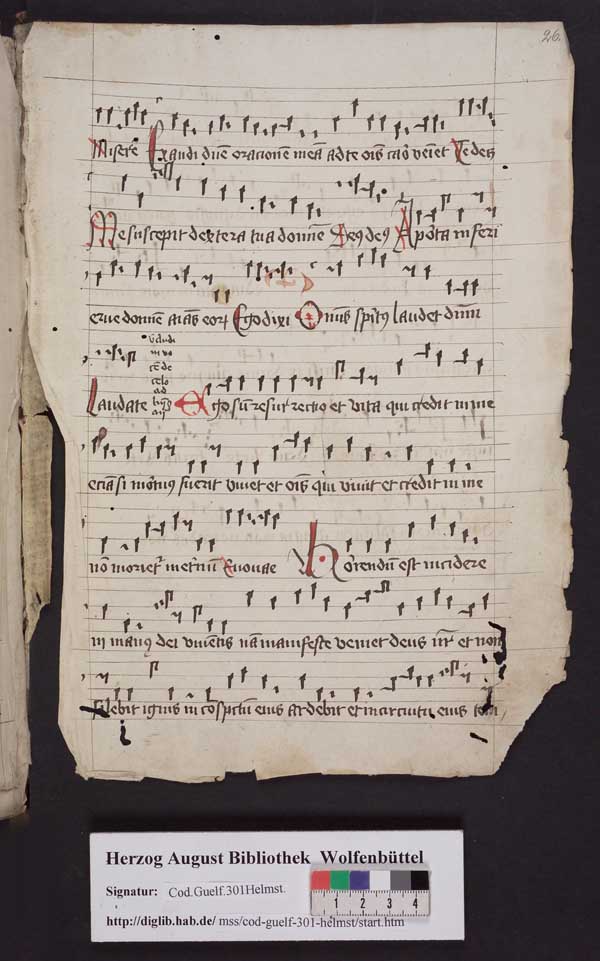 26.
Misere Exaudi dñe oracionẽ meã ad te oĩs caro veniet Te decet
Me suscepit dextera tua domine Deus deus A porta inferi
erue domine aĩas eorum Ego dixi Omnis spiritus laudet dñm
Laudate Ego sũ resurrectio et vita qui credit in me
audi
ui vo
cẽ de
celo
eciã si mortuus fuerit viuet et oĩs qui viuit et credit in me
nõ morietur in eternũ Euouae Horrendũ est incidere
in manus dei viuentis nã manifeste veniet deus nr̃ et non
silebit ignis in cõspectu eius ardebit et in circuitu eius tem
Herzog August Bibliothek Wolfenbüttel
Signatur: Cod.Guelf.301Helmst.
1 2 3 4
http://diglib.hab.de/ mss/cod-guelf-301-helmst/start.htm